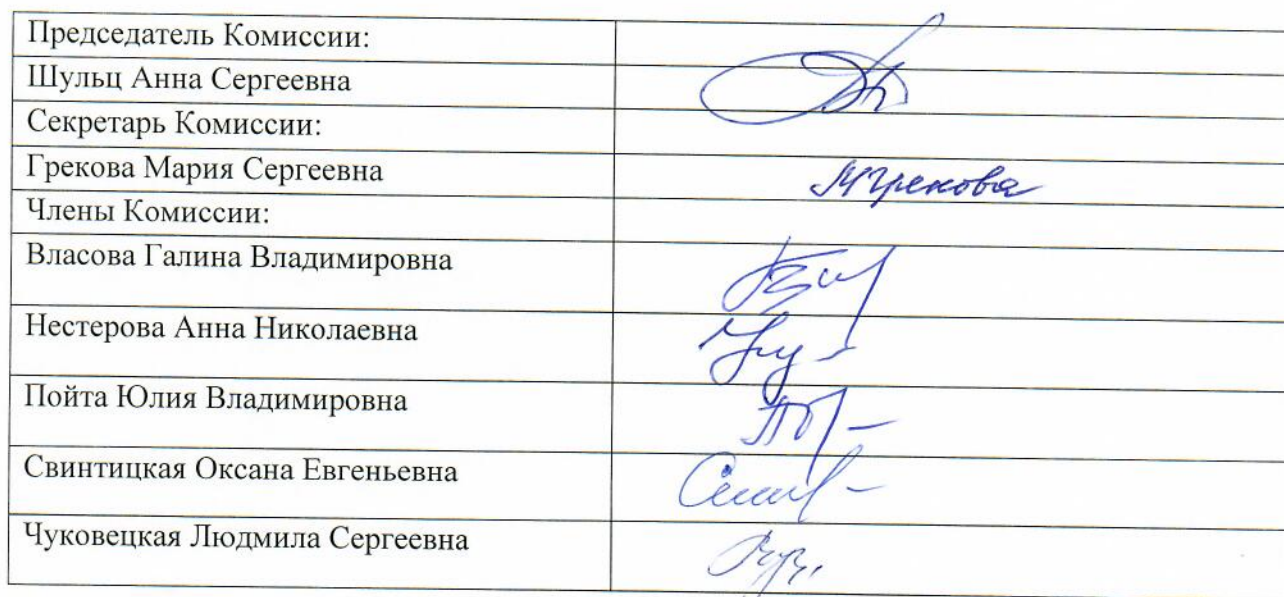 Председатель Комиссии:
Шульц Анна Сергеевна
Секретарь Комиссии:
Грекова Мария Сергеевна МГрекова
Члены Комиссии:
Власова Галина Владимировна
Нестерова Анна Николаевна
Пойта Юлия Владимировна
Свинтицкая Оксана Евгеньевна
Чуковецкая Людмила Сергеевна